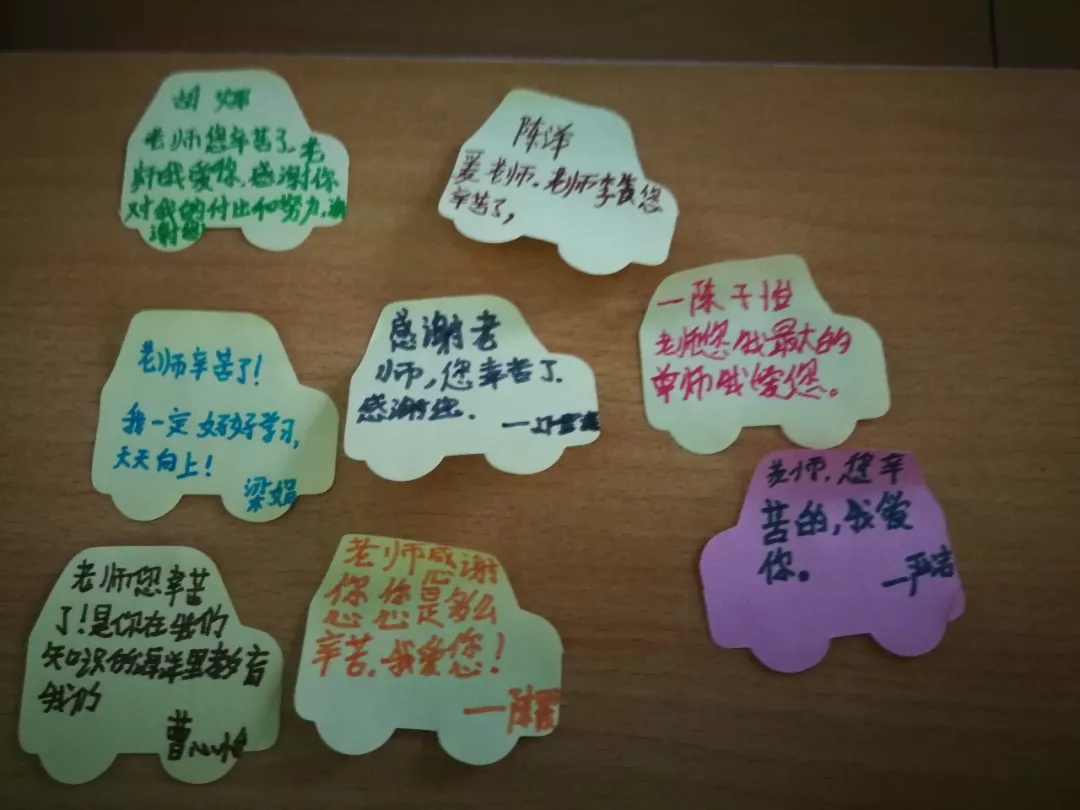 胡
老师您辛苦了。老
师我爱你,感谢你
对我的付出和努力,谢
谢您
陈泽
爱老师.老师
您
辛苦了,
一陈子怡
老师您我最大的
单师我爱您。
感谢老
师,您辛苦了.
感谢您.
老师辛苦了!
我一定好好学习,
天天向上!
梁娟
老师,您辛
苦的,我爱
你。
一严洁
老师您辛苦
了!是你在我们
知识的海洋里教育
我们
曹心怡
老师感谢
您您是多么
辛苦,我爱您!
一陈